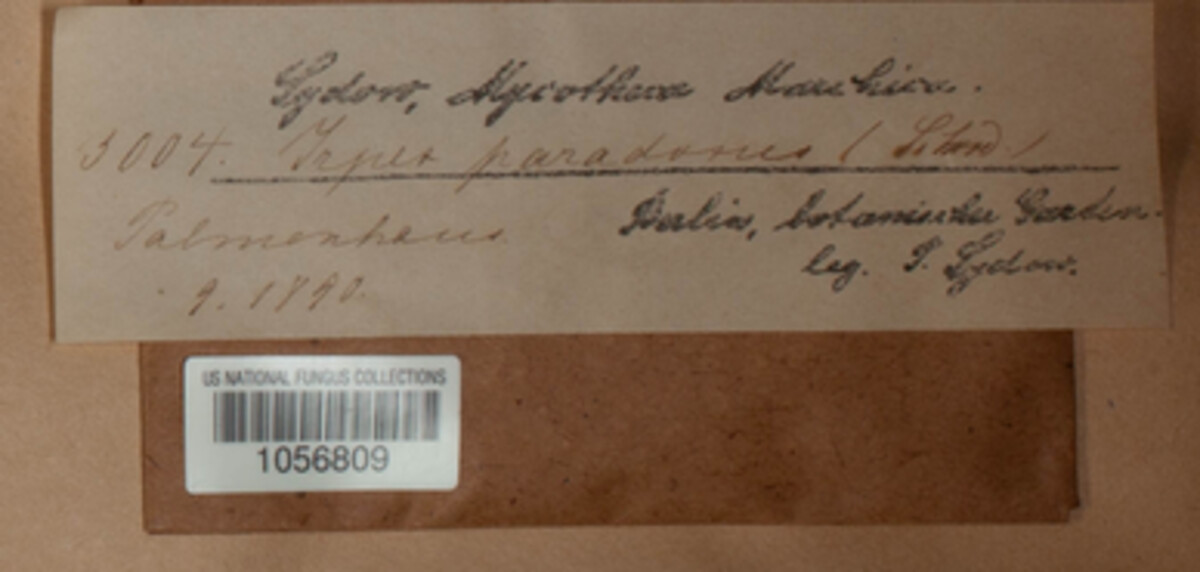 Sydow, Mycotheca Marchica.
3004. Irpex paradoxus (Schrad.)
Palmenhaus
9. 1890.
Berlin, botanischer Garten.
leg. P. Sydow.
US NATIONAL FUNGUS COLLECTIONS
1056809